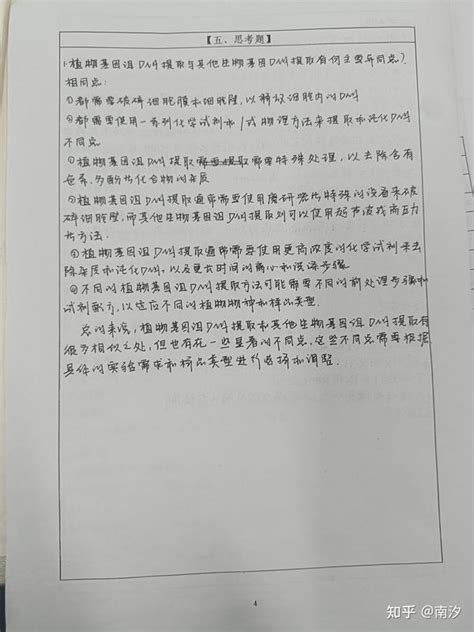 【五、思考题】
1.植物基因组DNA提取与其他生物基因组DNA提取有何主要异同点?
相同点:
①都需要破碎细胞膜和细胞壁,以释放细胞内的DNA
②都需要使用一系列化学试剂和/或物理方法来提取和纯化DNA
不同点:
①植物基因组DNA提取需要特殊处理,以去除含有
色素、多酚类化合物的杂质
②植物基因组DNA提取通常需要使用磨研器等特殊的设备来破
碎细胞壁,而其他生物基因组DNA提取则可以使用超声波或高压力
等方法.
③植物基因组DNA提取通常需要使用更高浓度的化学试剂来去
除杂质和纯化DNA,以及更长时间的离心和洗涤步骤
④不同的植物基因组DNA提取方法可能需要不同的前处理步骤和
试剂配方,以适应不同的植物物种和样品类型.
总的来说,植物基因组DNA提取和其他生物基因组DNA提取有
很多相似之处,但也存在一些显著的不同点,这些不同点需要根据
具体的实验需求和样品类型进行选择和调整.
4
知乎 @南汐